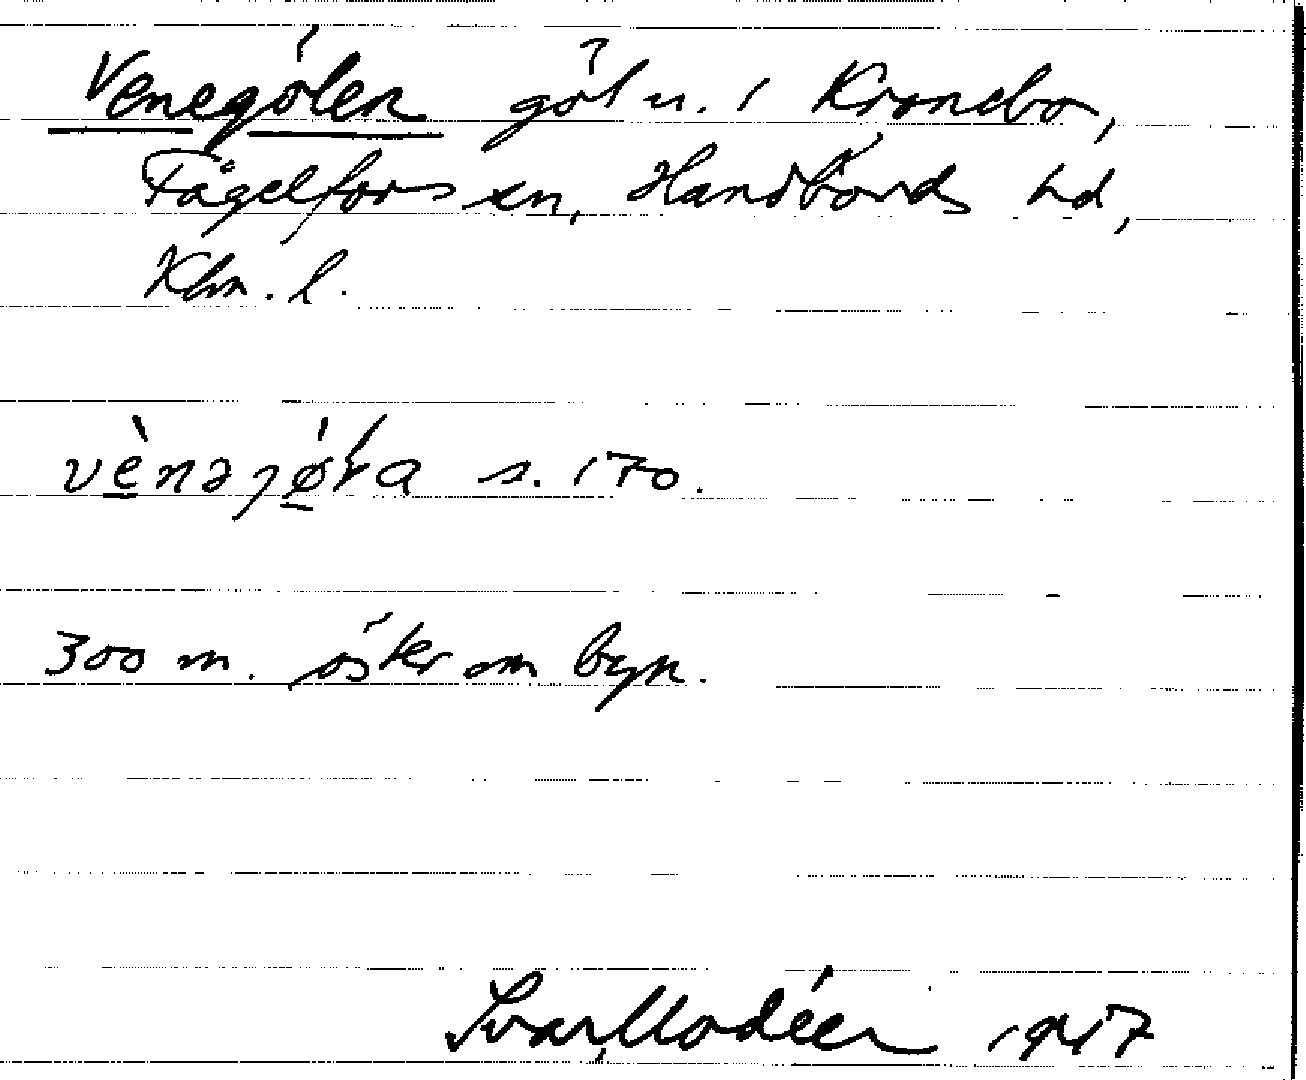 Venegölen göl n. i Kronebo,
Fågelfors sn, Handbörds hd,
Klm. l.
vè̱nəjǿ̱ɽa s. 170.
300 m. öster om byn.
Ivar Modéer 1917